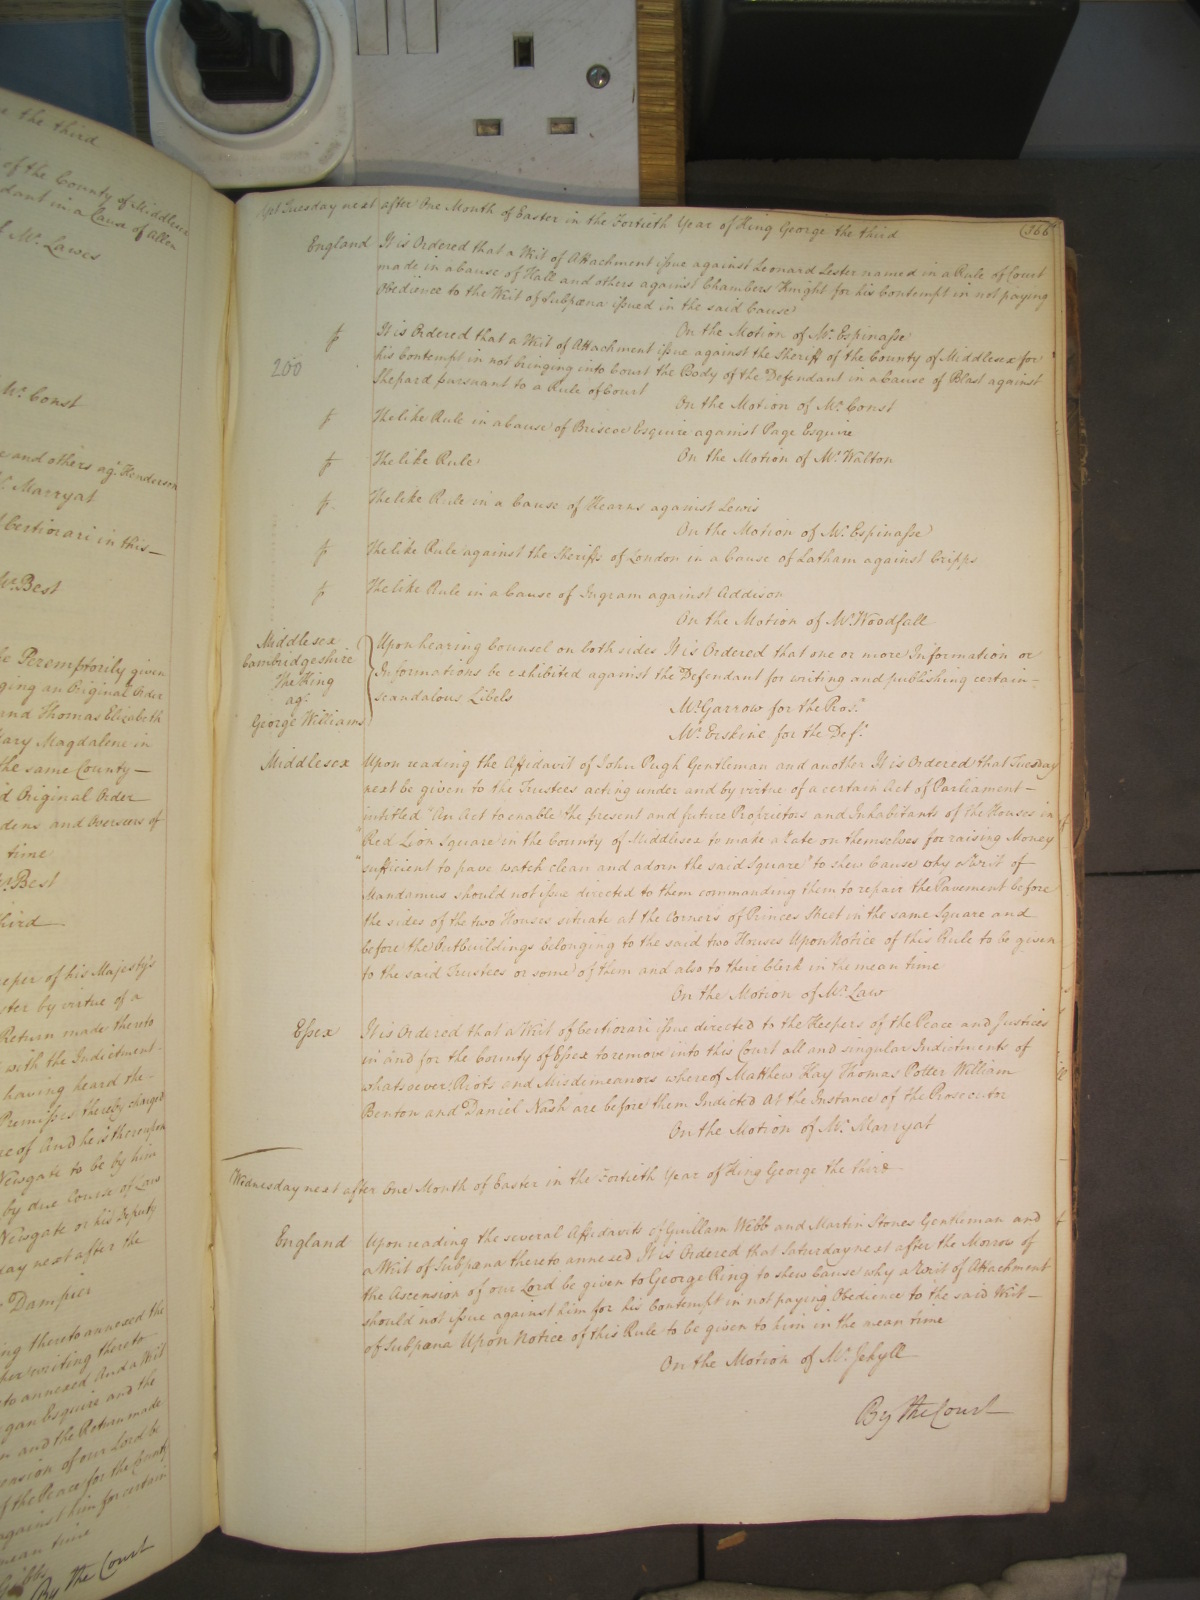 e the third
of the County of Middlesex
dant in a Cause of Allen
Mr. Lawes
Mr. Const
e and others agt. Henderson
Mr. Marryat
Certiorari in this—
Mr. Best
be Peremptorily given
ging an Original Order
and Thomas Elizabeth
Mary Magdalene in
the same County—
d Original Order
dens and Overseers of
time
Mr. Best
hird
eeper of his Majesty's
ster by virtue of a
Return made thereto
with the Indictment
having heard the
Premisses thereby charged
ce of And he is thereupon
Newgate to be by him
by due Course of Law
Newgate or his Deputy
day next after the
Dampier
ing thereto annexed the
her writing thereto
to annexed And a Writ
gan Esquire and the
n and the Return made
cension of our Lord be
of the Peace for the County
against him for certain
mean time
Gibbs
By the Court
Yet Tuesday next after One Month of Easter in the Fortieth Year of King George the third
(366
England It is Ordered that a Writ of Attachment issue against Leonard Lester named in a Rule of Court
made in a Cause of Hall and others against Chambers Knight for his Contempt in not paying
Obedience to the Writ of Subpœna issued in the said Cause
On the Motion of Mr. Espinasse
It is Ordered that a Writ of Attachment issue against the Sheriff of the County of Middlesex for
200
his Contempt in not bringing into Court the Body of the Defendant in a Cause of Blast against
Shepard pursuant to a Rule of Court
On the Motion of Mr. Const
The like Rule in a Cause of Briscoe Esquire against Page Esquire
The like Rule
On the Motion of Mr. Walton
The like Rule in a Cause of Hearns against Lewis
On the Motion of Mr. Espinasse
The like Rule against the Sheriffs of London in a Cause of Latham against Cripps
The like Rule in a Cause of Ingram against Addison
On the Motion of Mr. Woodfall
Middlesex
Cambridgeshire
The King
agt.
George Williams
Upon hearing Counsel on both sides It is Ordered that one or more Information or
Informations be exhibited against the Defendant for writing and publishing certain—
scandalous Libels
Mr. Garrow for the Prosr.
Mr. Erskine for the Deft.
Middlesex Upon reading the Affidavit of John Pugh Gentleman and another It is Ordered that Tuesday
next be given to the Trustees acting under and by virtue of a certain Act of Parliament—
intitled "An Act to enable the present and future Proprietors and Inhabitants of the Houses in
"Red Lion Square in the County of Middlesex to make a Rate on themselves for raising Money
"sufficient to pave watch clean and adorn the said Square" to shew Cause why a Writ of
Mandamus should not issue directed to them commanding them to repair the Pavement before
the sides of the two Houses situate at the Corners of Princes Street in the same Square and
before the Outbuildings belonging to the said two Houses Upon Notice of this Rule to be given
to the said Trustees or some of them and also to their Clerk in the mean time
On the Motion of Mr. Law
Essex It is Ordered that a Writ of Certiorari issue directed to the Keepers of the Peace and Justices
in and for the County of Essex to remove into this Court all and singular Indictments of
whatsoever Riots and Misdemeanors whereof Matthew Hay Thomas Potter William
Benton and Daniel Nash are before them Indicted At the Instance of the Prosecutor
On the Motion of Mr. Marryat
Wednesday next after One Month of Easter in the Fortieth Year of King George the third
England Upon reading the several Affidavits of Guillam Webb and Martin Stones Gentleman and
a Writ of Subpœna thereto annexed It is Ordered that Saturday next after the Morrow of
the Ascension of our Lord be given to George Ring to shew Cause why a Writ of Attachment
should not issue against him for his Contempt in not paying Obedience to the said Writ—
of Subpœna Upon Notice of this Rule to be given to him in the mean time
On the Motion of Mr. Jekyll
By the Court